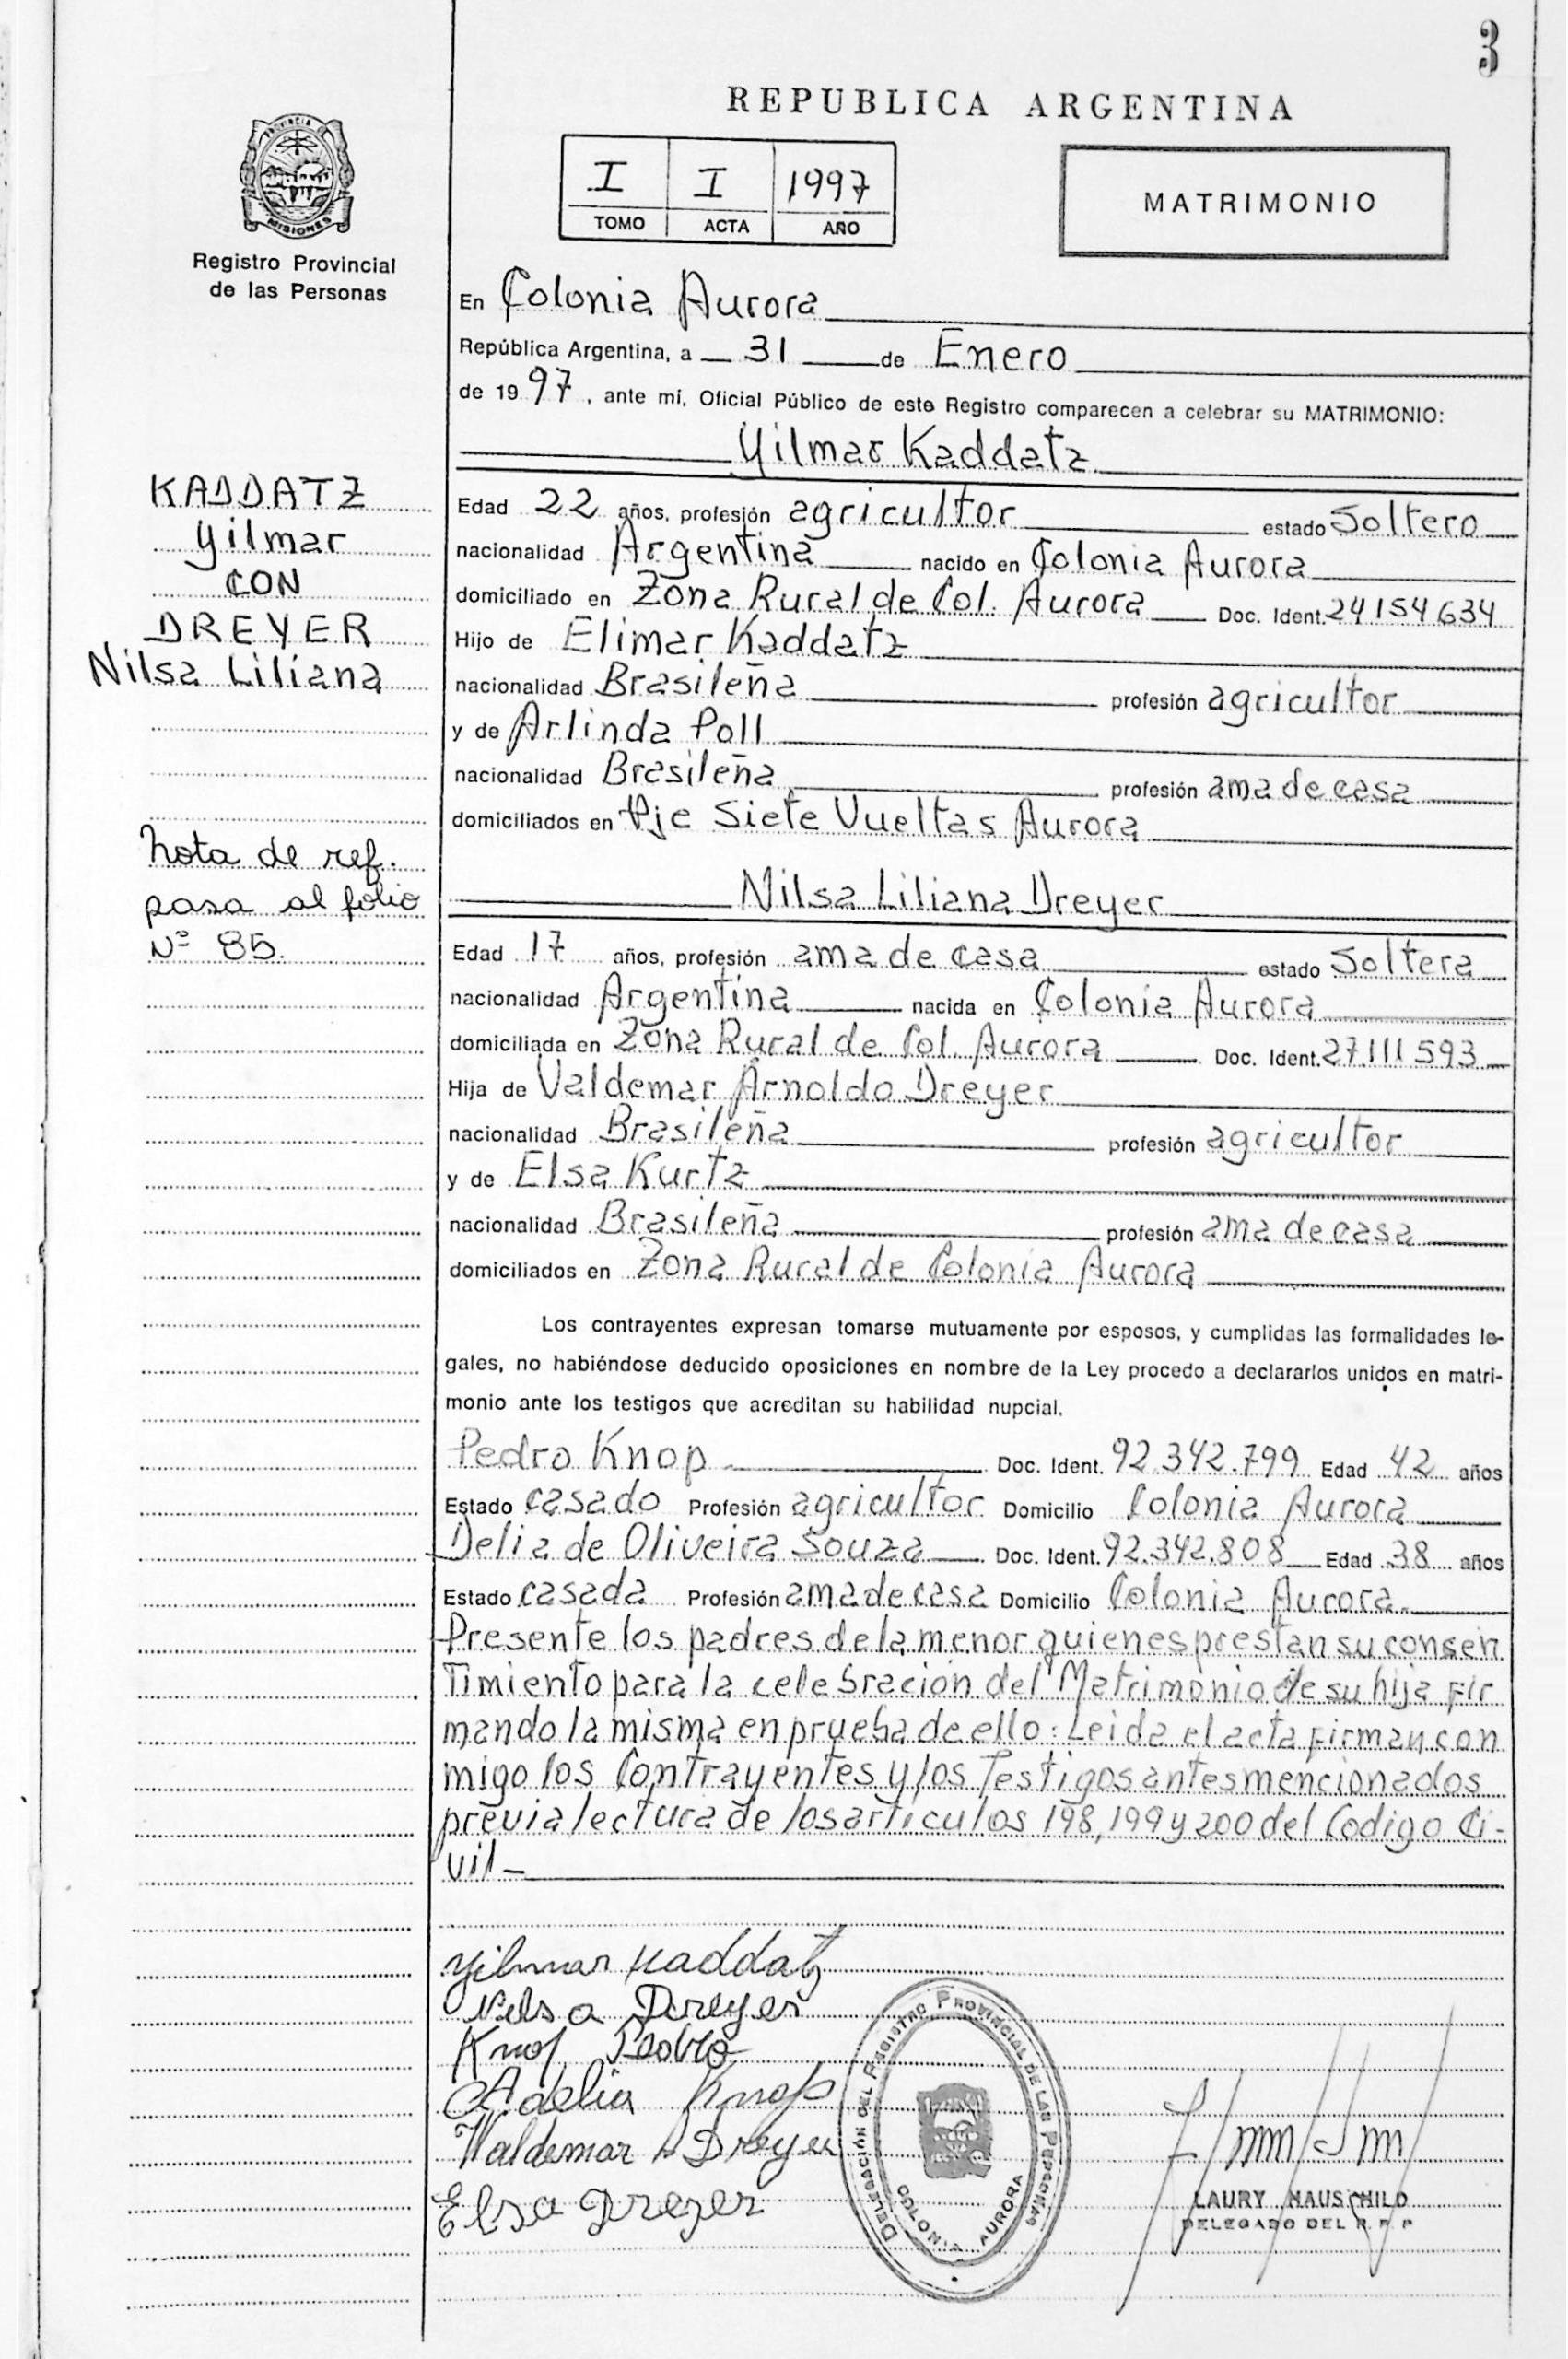 3
REPUBLICA ARGENTINA
PROVINCIA
MISIONES
Registro Provincial
de las Personas
I I 1997
TOMO ACTA AÑO
MATRIMONIO
En Colonia Aurora
República Argentina, a 31 de Enero
de 1997, ante mi, Oficial Público de este Registro comparecen a celebrar su MATRIMONIO:
Yilmar Kaddatz
KADDATZ
Yilmar
CON
DREYER
Nilsa Liliana
Edad 22 años, profesión agricultor estado Soltero
nacionalidad Argentina nacido en Colonia Aurora
domiciliado en Zona Rural de Col. Aurora Doc. Ident. 24154634
Hijo de Elimar Kaddatz
nacionalidad Brasileña profesión agricultor
y de Arlinda Poll
nacionalidad Brasileña profesión ama de casa
domiciliados en Pje Siete Vueltas Aurora
Nota de ref.
pasa al folio
Nº 85.
Nilsa Liliana Dreyer
Edad 17 años, profesión ama de casa estado Soltera
nacionalidad Argentina nacida en Colonia Aurora
domiciliada en Zona Rural de Col. Aurora Doc. Ident. 27.111.593
Hija de Valdemar Arnoldo Dreyer
nacionalidad Brasileña profesión agricultor
y de Elsa Kurtz
nacionalidad Brasileña profesión ama de casa
domiciliados en Zona Rural de Colonia Aurora
Los contrayentes expresan tomarse mutuamente por esposos, y cumplidas las formalidades le-
gales, no habiéndose deducido oposiciones en nombre de la Ley procedo a declararlos unidos en matri-
monio ante los testigos que acreditan su habilidad nupcial.
Pedro Knop Doc. Ident. 92.342.799 Edad 42 años
Estado casado Profesión agricultor Domicilio Colonia Aurora
Delia de Oliveira Souza Doc. Ident. 92.342.808 Edad 38 años
Estado casada Profesión ama de casa Domicilio Colonia Aurora.
Presente los padres de la menor quienes prestan su consen
timiento para la celebración del Matrimonio de su hija fir
mando la misma en prueba de ello: Leida el acta firman con
migo los Contrayentes y los Testigos antes mencionados
previa lectura de los artículos 198, 199 y 200 del Codigo Ci-
vil -
Yilmar Kaddatz
Nilsa Dreyer
Knop Pedro
Adelia Knop
Valdemar A Dreyer
Elsa Dreyer
DELEGACIÓN DEL REGISTRO PROVINCIAL DE LAS PERSONAS
COLONIA AURORA
LAURY HAUSCHILD
DELEGADO DEL R. P. P.